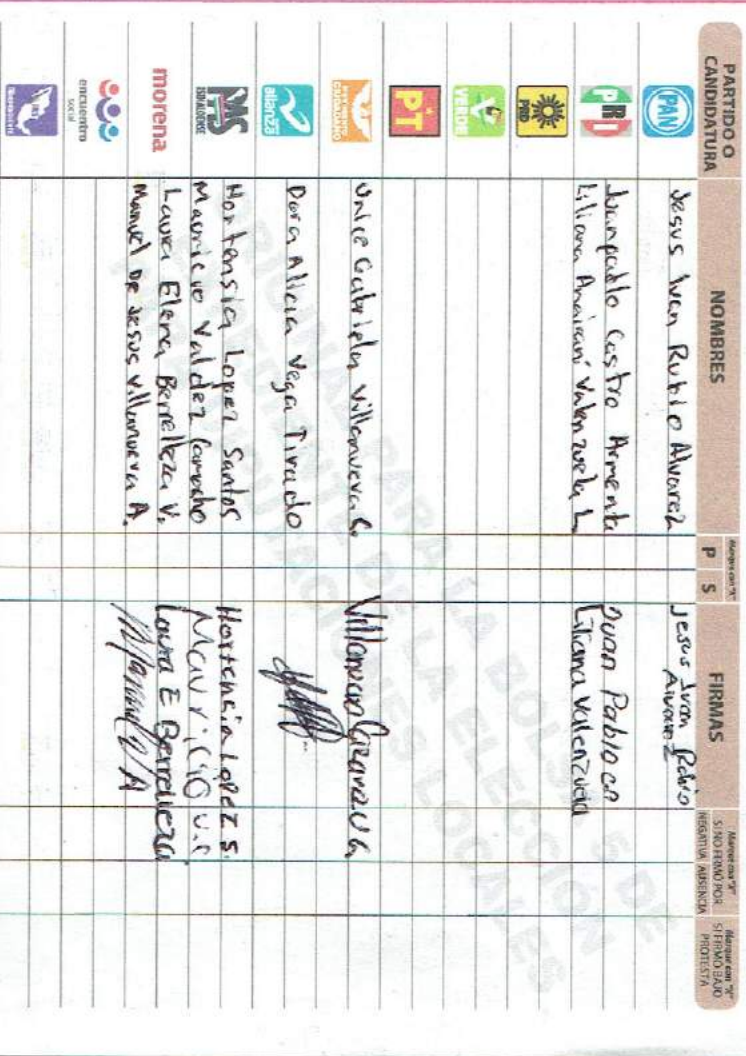 PARTIDO O
CANDIDATURA
NOMBRES
Marque con "X"
P S
FIRMAS
Marque con "X"
SI NO FIRMÓ POR
NEGATIVA AUSENCIA
Marque con "X"
SI FIRMÓ BAJO
PROTESTA
PAN
Jesus Ivan Rubio Alvarez
Jesus Ivan Rubio
Alvarez
PRI
Juanpablo Castro Armenta
Juan Pablo ca
Liliana Anairani Valenzuela L
Liliana Valenzuela
PRD
VERDE
PT
MOVIMIENTO
CIUDADANO
Unice Gabriela Villanueva C.
Villanueva
alianza
Dora Alicia Vega Tirado
PAS
SINALOENSE
Hortensia Lopez Santos
Hortensia Lopez S.
Mauricio Valdez Camacho
Mauricio V.C
morena
Laura Elena Berrelleza V.
Laura E Berrelleza
Manuel De Jesus Villanueva A.
encuentro
social
INDEPENDIENTE
ORIGINAL PARA LA BOLSA 5 DE
EXPEDIENTE DE LA ELECCIÓN
DIPUTACIONES LOCALES